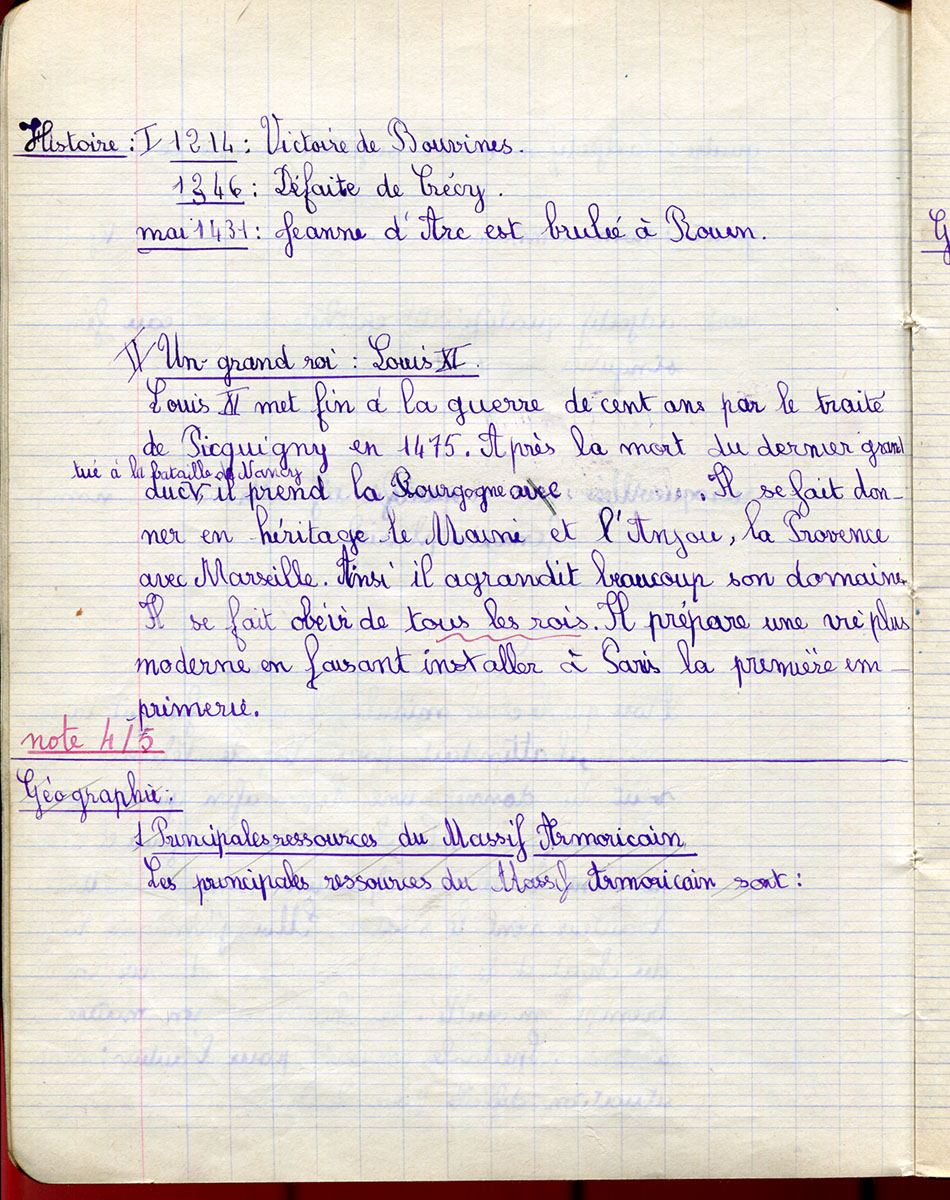 Histoire : I 1214 : Victoire de Bouvines.
1346 : Défaite de Crécy.
mai 1431 : Jeanne d'Arc est brulée à Rouen.
II Un grand roi : Louis XI.
Louis XI met fin à la guerre de cent ans par le traité
de Picquigny en 1475. Après la mort du dernier grand
tué à la bataille de Nancy
duc, il prend la Bourgogne avec . Il se fait don-
ner en héritage le Maine et l'Anjou, la Provence
avec Marseille. Ainsi il agrandit beaucoup son domaine.
Il se fait obéir de tous les rois. Il prépare une vie plus
moderne en faisant installer à Paris la première im-
primerie.
note 4/5
Géographie :
1 Principales ressources du Massif Armoricain
Les principales ressources du Massif Armoricain sont :
G